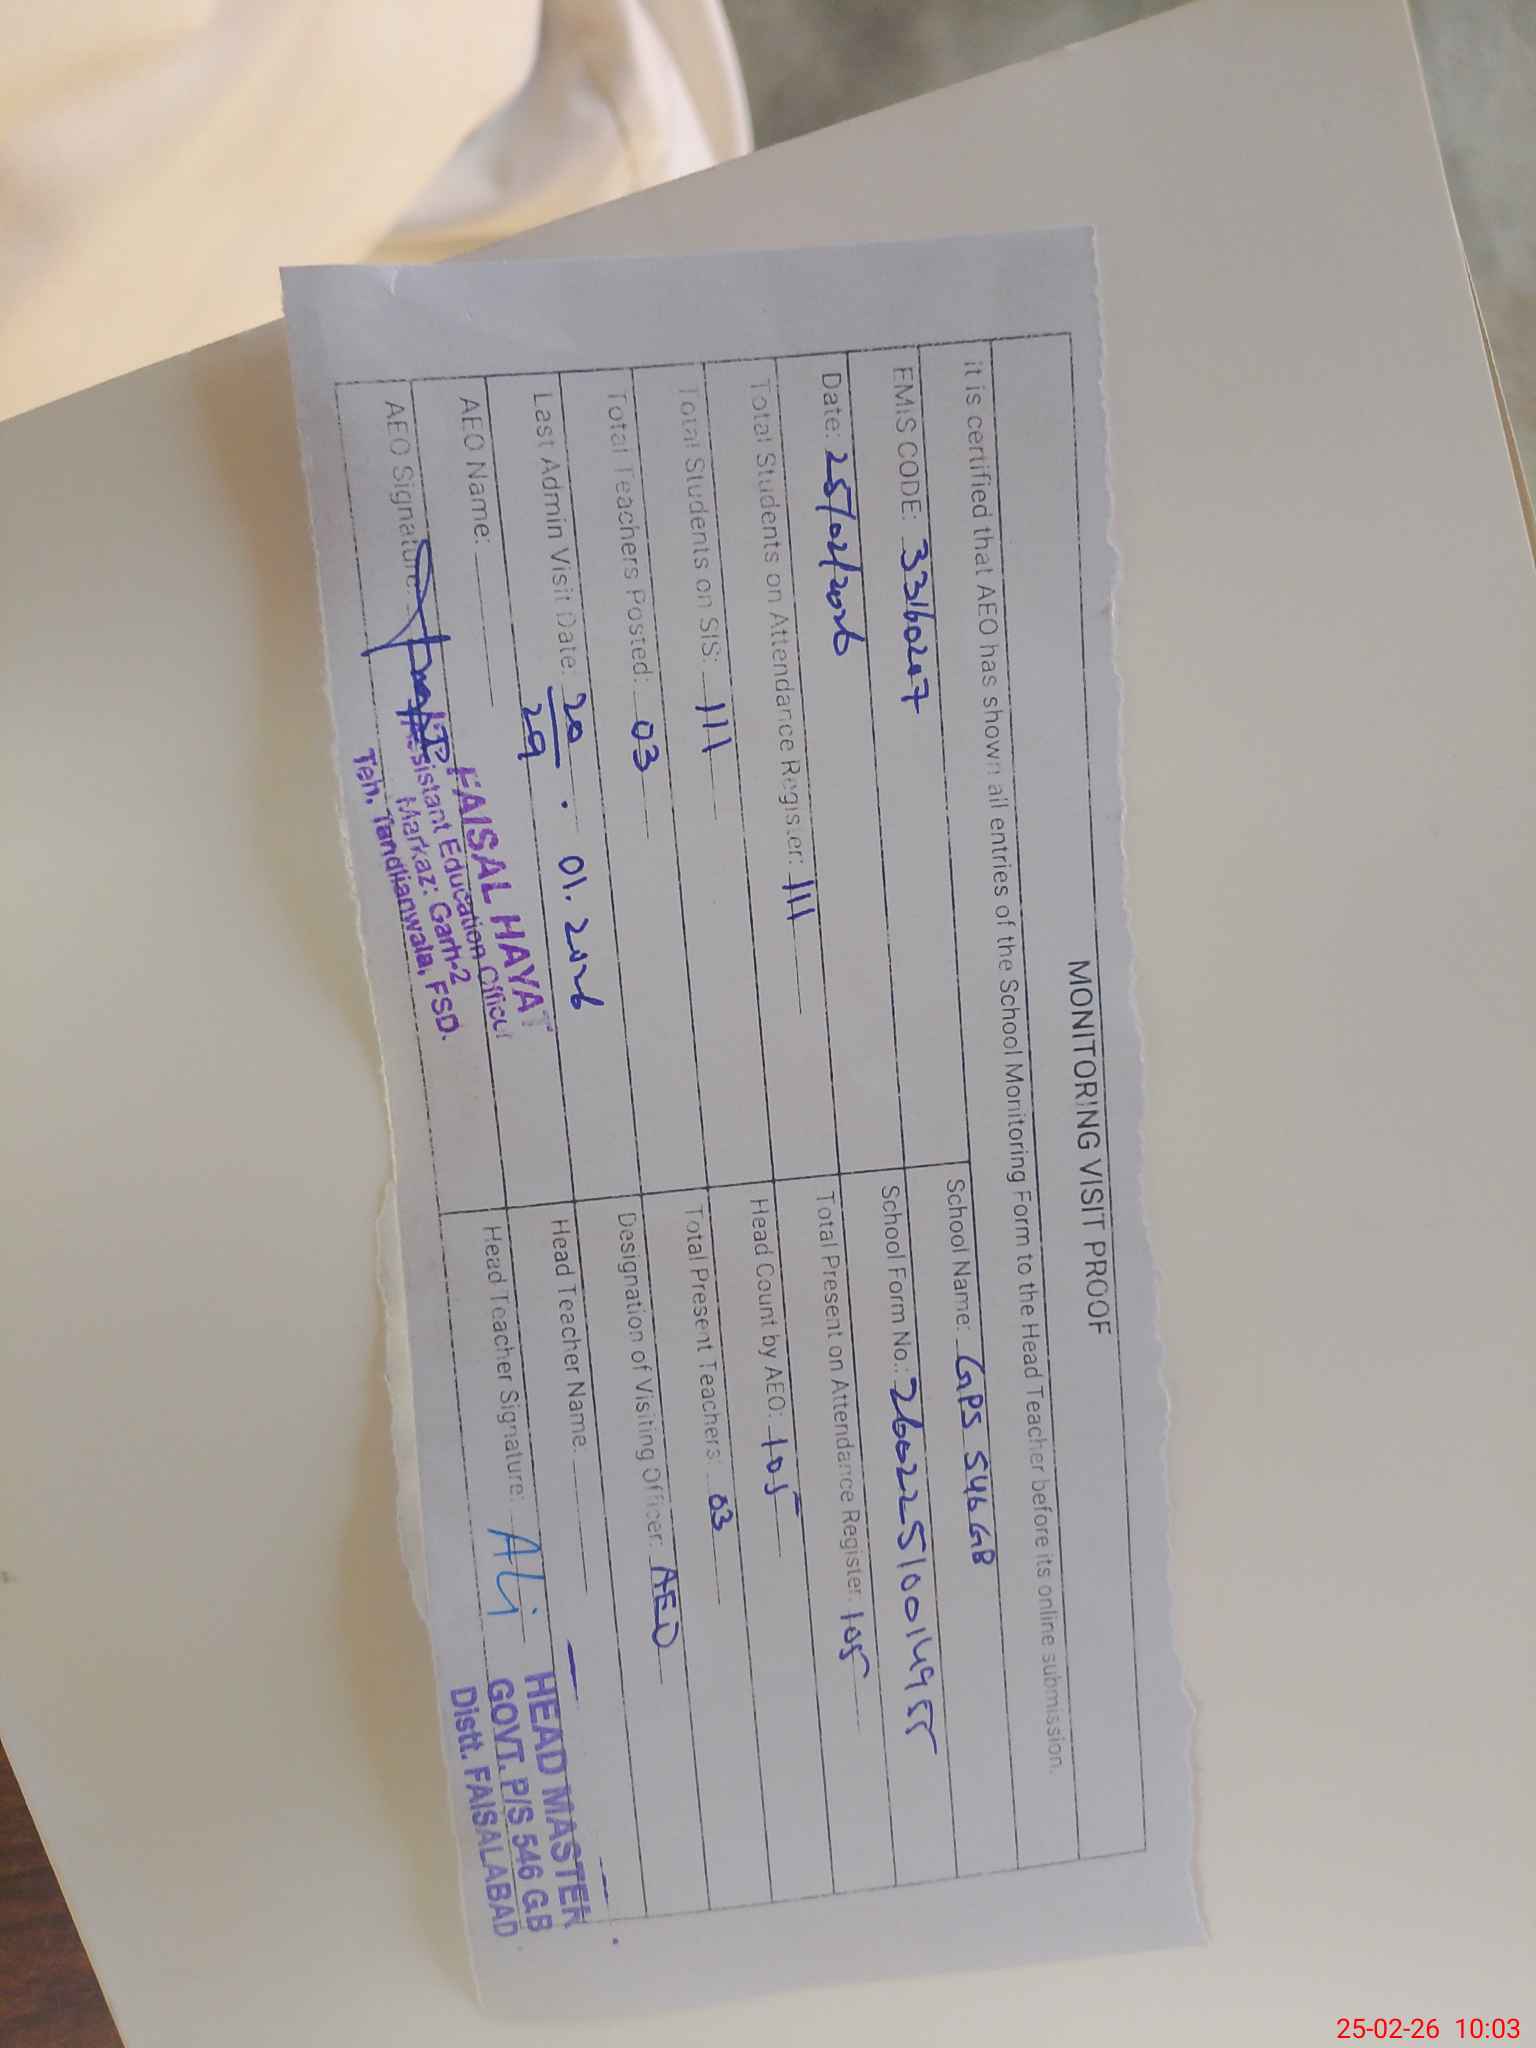 MONITORING VISIT PROOF
it is certified that AEO has shown all entries of the School Monitoring Form to the Head Teacher before its online submission.
EMIS CODE: 33160247
School Name: GPS 546 GB
Date: 25/02/2026
School Form No.: 26022510014955
Total Students on Attendance Register: 111
Total Present on Attendance Register: 105
Total Students on SIS: 111
Head Count by AEO: 105
Total Teachers Posted: 03
Total Present Teachers: 03
Last Admin Visit Date: 20 . 01. 2026
29
Designation of Visiting Officer: AEO
AEO Name:
Head Teacher Name:
AEO Signature:
Head Teacher Signature: Ali
FAISAL HAYAT
Assistant Education Officer
Markaz: Garh-2
Teh. Tandlianwala, FSD.
HEAD MASTER
GOVT. P/S 546 G.B
Distt. FAISALABAD
25-02-26 10:03